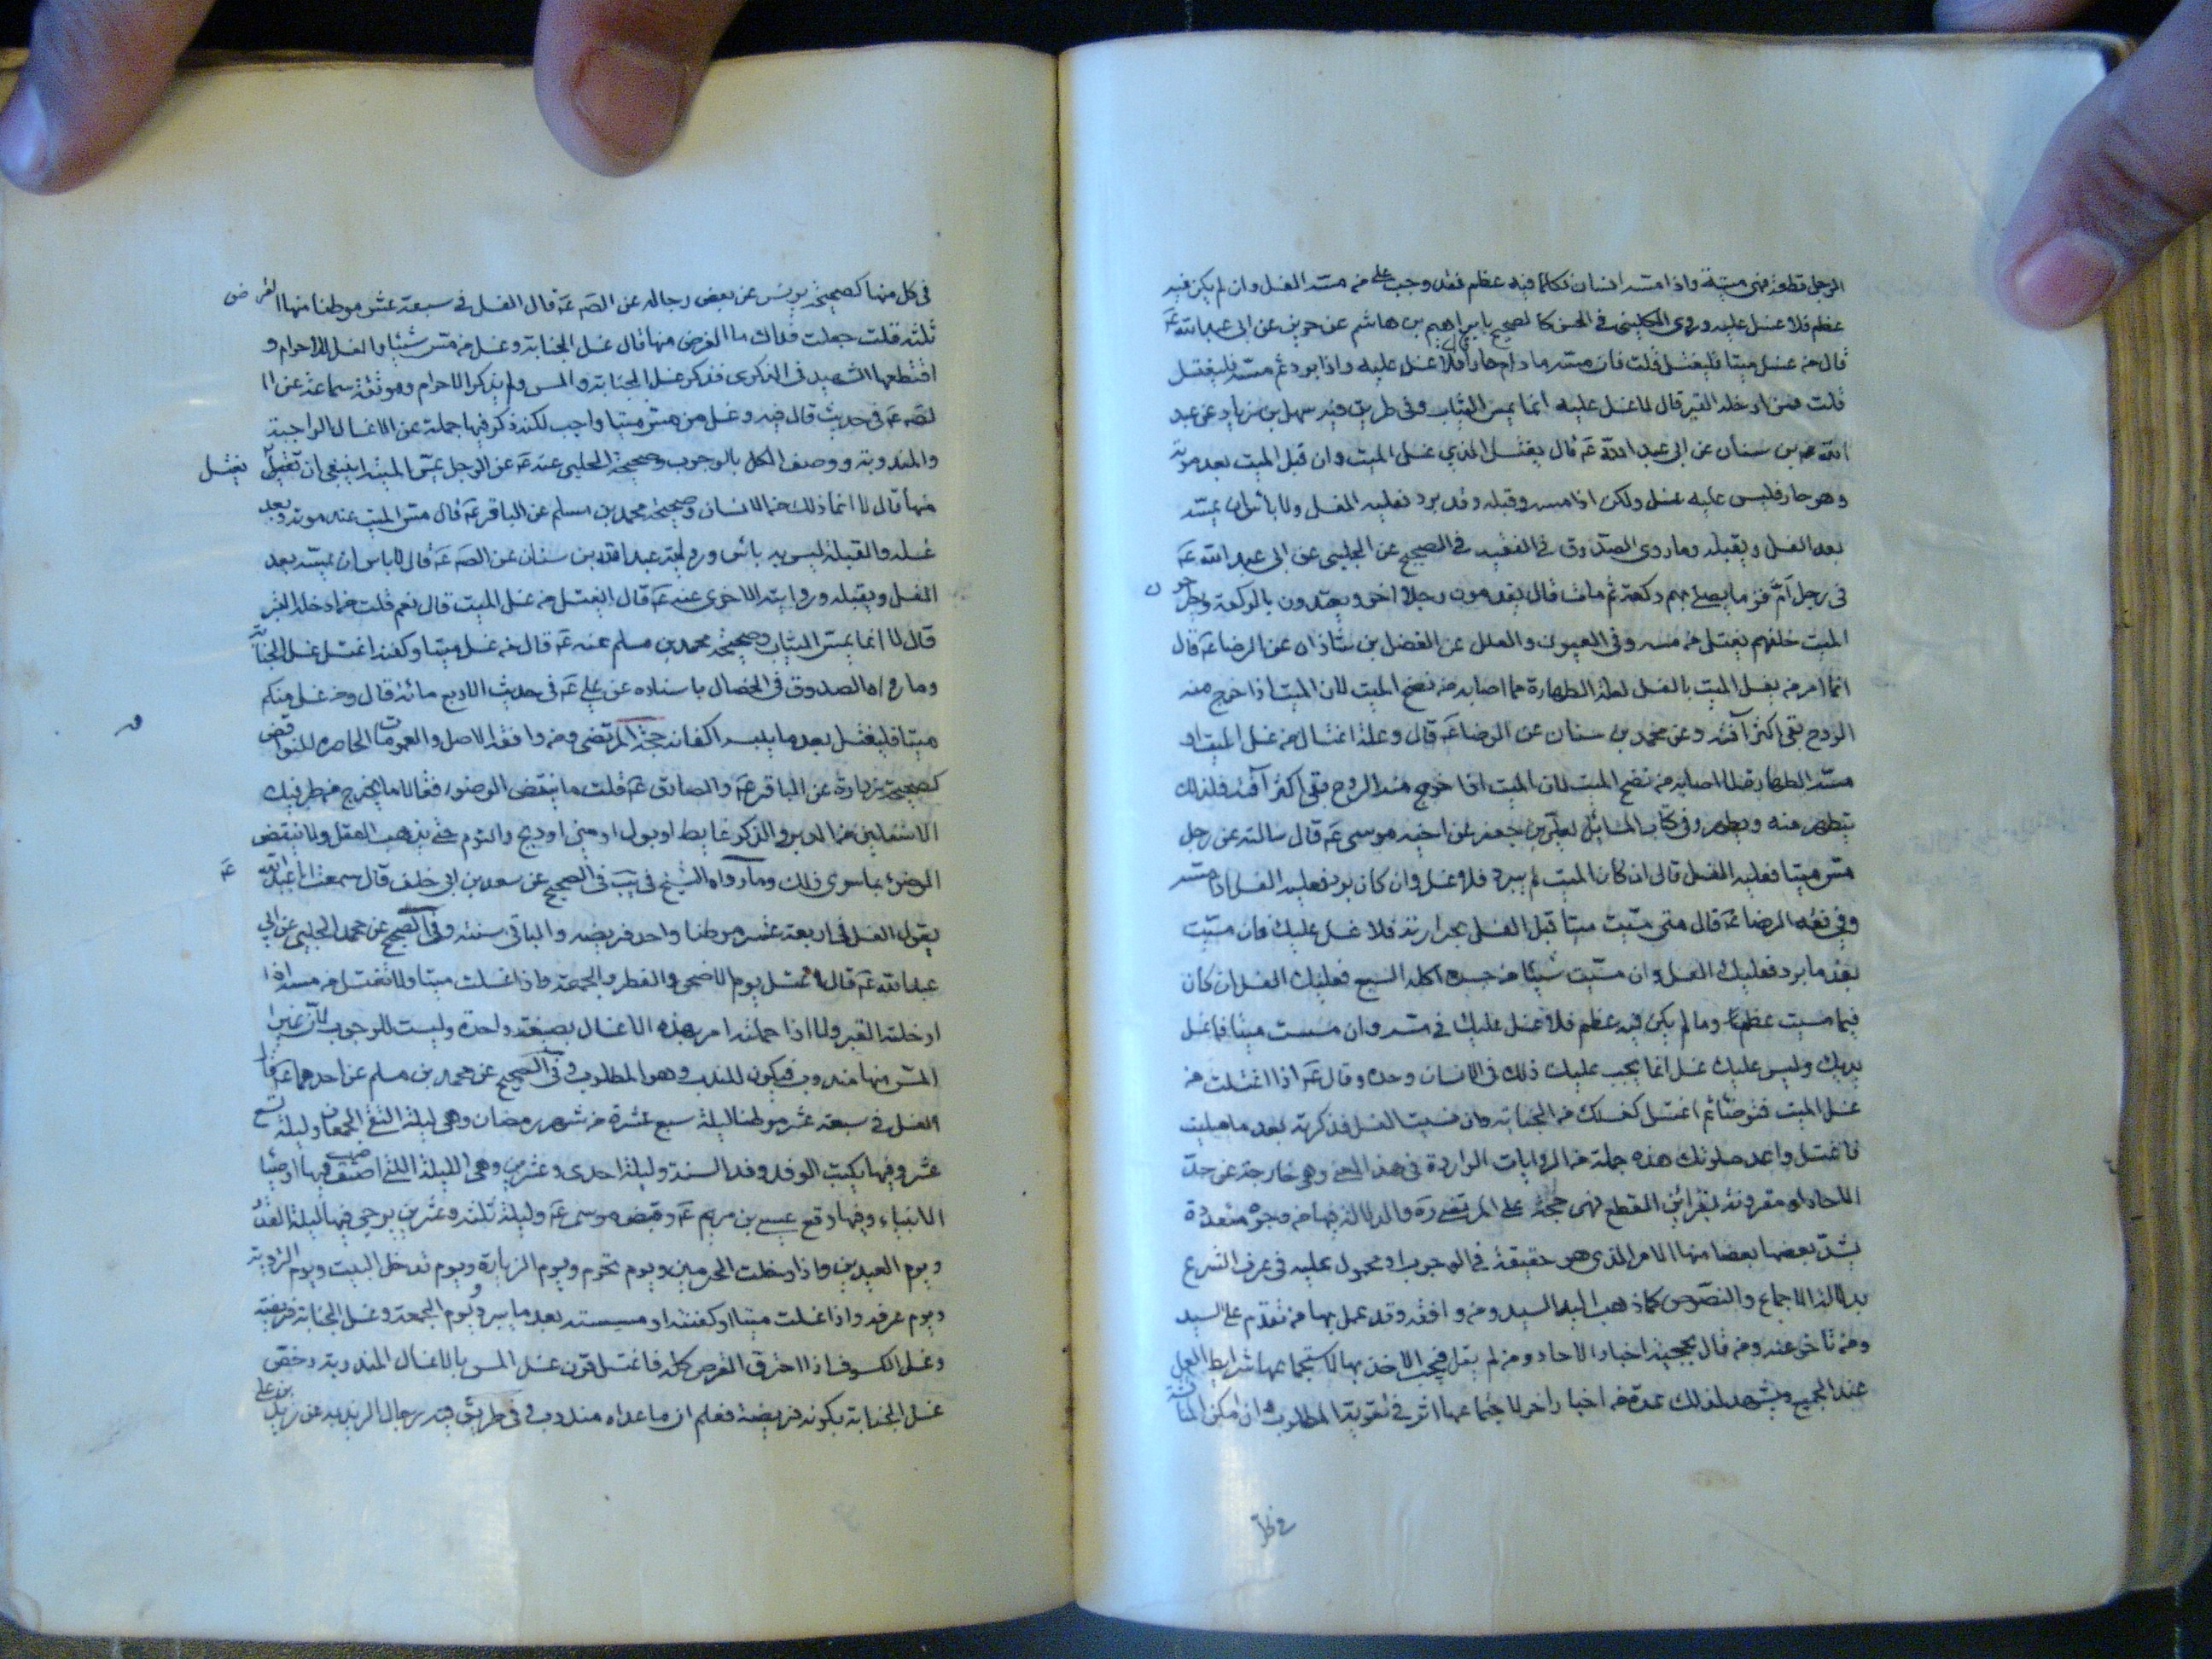 الرجل قطعة فهي ميتة واذا مسه انسان فكلما فيه عظم فقد وجب على من مسه الغسل وان لم يكن فيه
عظم فلا غسل عليه وروى الكليني في الحسن كالصحيح بابراهيم بن هاشم عن حريز عن ابي عبدالله عَ
قال من غسل ميتا فليغتسل قلت فان مسه ما دام حارا قال فلا غسل عليه واذا برد ثم مسه فليغتسل
قلت فمن ادخله القبر قال لا غسل عليه انما يمس الثياب وفي طريق فيه سهل بن زياد عن عبد
الله بن سنان عن ابي عبد الله عَ قال يغتسل الذي غسل الميت وان قبل الميت بعد موته
وهو حار فليس عليه غسل ولكن اذا مسه وقبله وقد برد فعليه الغسل ولا باس ان يمسه
بعد الغسل ويقبله وما روى الصدوق في الفقيه في الصحيح عن الحلبي عن ابي عبد الله عَ
في رجل امّ قوما يصلي بهم ركعة ثم مات قال يقدمون رجلا اخر ويعتدون بالركعة ويطرحون
الميت خلفهم يغتسل من مسه وفي العيون والعلل عن الفضل بن شاذان عن الرضا عَ قال
انما امر من يغسل الميت بالغسل لعلة الطهارة مما اصابه من نضح الميت لان الميت اذا خرج منه
الروح بقي اكثر آفته وعن محمد بن سنان عن الرضا عَ قال وعلة اغتسال من غسل الميت او
مسه الطهارة لما اصابه من نضح الميت لان الميت اذا خرج منه الروح بقي اكثر آفته فلذلك
يتطهر منه ويطهر وفي كتاب المسائل لعلي بن جعفر عن اخيه موسى عَ قال سالته عن رجل
مس ميتا فعليه الغسل قال ان كان الميت لم يبرد فلا غسل وان كان برد فعليه الغسل اذا مسه
وفي فقه الرضا عَ قال متى مسّت ميتا قبل الغسل بحرارته فلا غسل عليك فان مسّت
بعد ما برد فعليك الغسل وان مسّت شيئا من جسد اكله السبع فعليك الغسل ان كان
فيما مسيت عظم وما لم يكن فيه عظم فلا غسل عليك في مسه وان مسست ميتا فاغسل
يديك وليس عليك غسل انما يجب عليك ذلك في الانسان وحده وقال عَ اذا اغتسلت من
غسل الميت فتوضأ ثم اغتسل كغسلك من الجنابة وان نسيت الغسل فذكرته بعد ما صليت
فاغتسل واعد صلوتك هذه جملة من الروايات الواردة في هذا المعنى وهي خارجة عن حدّ
الاحاد او مقرونة بقرائن القطع فهي حجة على المرتضى ره والدلالة فيها من وجوه متعددة
يشدّ بعضها بعضا منها الامر الذي هو حقيقة في الوجوب او محمول عليه في عرف الشرع
بدلالة الاجماع والنصوص كما ذهب اليه السيد ومن وافقه وقد عمل بها من تقدم على السيد
ومن تاخر عنه ومن قال بحجية اخبار الاحاد ومن لم يقل فيجب الاخذ بها لاستجماعها شرايط العمل
عند الجميع ويشهد لذلك عدة من اخبار اخر لاجتماعها اثر في تقوية المطلوب وان امكن
في كل منها كصحيحة يونس عن بعض رجاله عن الصَه عَه قال الغسل في سبعة عشر موطنا منها الفرض
ثلثة قلت جعلت فداك ما الفرض منها قال غسل الجنابة وغسل من مس شيئا والغسل للاحرام و
اقتطعها الشهيد في الذكرى فذكر غسل الجنابة والمس ولم يذكر الاحرام وموثقة سماعة عن ا
لصَه عَه في حديث قال فيه وغسل من مس ميتا واجب لكنه ذكر فيها جملة عن الاغسال الواجبة
والمندوبة ووصف الكل بالوجوب وصحيحة الحلبي عنه عَه عن الرجل يمس الميتة اينبغي ان يغتسل
منها قال لا انما ذلك من الانسان وصحيحة محمد بن مسلم عن الباقر عَه قال مس الميت عند موته وبعد
غسله والقبلة ليس به باس ورواية عبد الله بن سنان عن الصَه عَه قال لا باس ان يمسه بعد
الغسل ويقبله وروايته الاخرى عنه عَه قال ايغتسل من غسل الميت قال نعم قلت من ادخله القبر
قال لا انما يمس الثياب وصحيحة محمد بن مسلم عنه عَه قال من غسل ميتا وكفنه اغتسل غسل الجنابة
وما رواه الصدوق في الخصال باسناده عن علي عَه في حديث الاربع مائة قال ومن غسل منكم
ميتا فليغتسل بعد ما يلبسه اكفانه حجة المرتضى ومن وافقه الاصل والعمومات الحاصرة للنواقض
كصحيحة زرارة عن الباقر عَه والصادق عَه قلت ما ينقض الوضوء فقالا ما يخرج من طرفيك
الاسفلين من الدبر والذكر غايط او بول او مني او ريح والنوم حتى يذهب العقل ولا ينقض
الوضوء ما سوى ذلك وما رواه الشيخ في يب في الصحيح عن سعد بن ابي خلف قال سمعت ابا عبدالله عَه
يقول الغسل في اربعة عشر موطنا واحد فريضه والباقي سنة وفي الصحيح عن محمد الحلبي عن ابي
عبدالله عَه قال اغتسل يوم الاضحى والفطر والجمعة واذا غسلت ميتا ولا تغتسل من مسه اذا
ادخلته القبر ولا اذا حملته امر بهذه الاغسال بصيغة واحدة وليست للوجوب لان غير
المس منها مندوب فيكون للندب وهو المطلوب وفي الصحيح عن محمد بن مسلم عن احدهما عَه قال
الغسل في سبعة عشر موطنا ليلة سبع عشرة من شهر رمضان وهي ليلة التقى الجمعان وليلة تسع
عشر وفيها يكتب الوفد وفد السنة وليلة احدى وعشرين وهي الليلة التي اصيب فيها اوصياء
الانبياء وفيها رفع عيسى بن مريم عَه وقبض موسى عَه وليلة ثلثة وعشرين يرجى فيها ليلة القدر
ويوم العيدين واذا دخلت الحرمين ويوم تحرم ويوم الزيارة ويوم تدخل البيت ويوم التروية
ويوم عرفه واذا غسلت ميتا او كفنته او مسسته بعد ما يبرد ويوم الجمعة وغسل الجنابة فريضة
وغسل الكسوف اذا احترق القرص كله فاغتسل قرن غسل المس بالاغسال المندوبة وخص
غسل الجنابة بكونه فريضة فعلم ان ما عداه مندوب وفي طريق فيه رجال الزيدية عن زيد بن علي